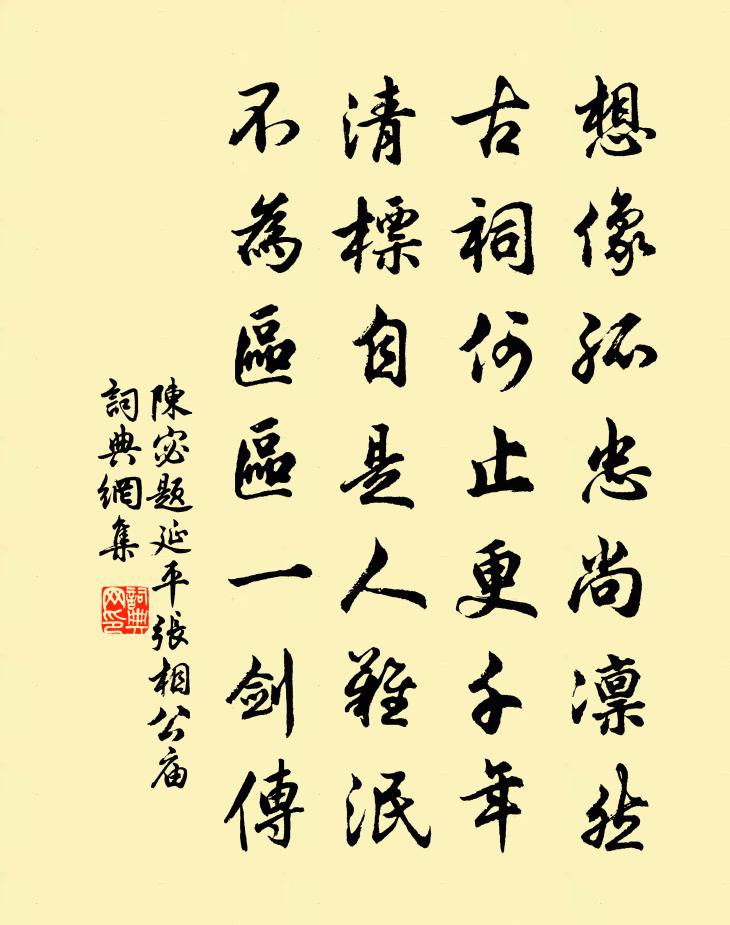 想像孤忠尚凛然
古祠何止更千年
清標自是人難泯
不為區區一劍傳
陳宓題延平張相公庙
詞典網集
詞典网印